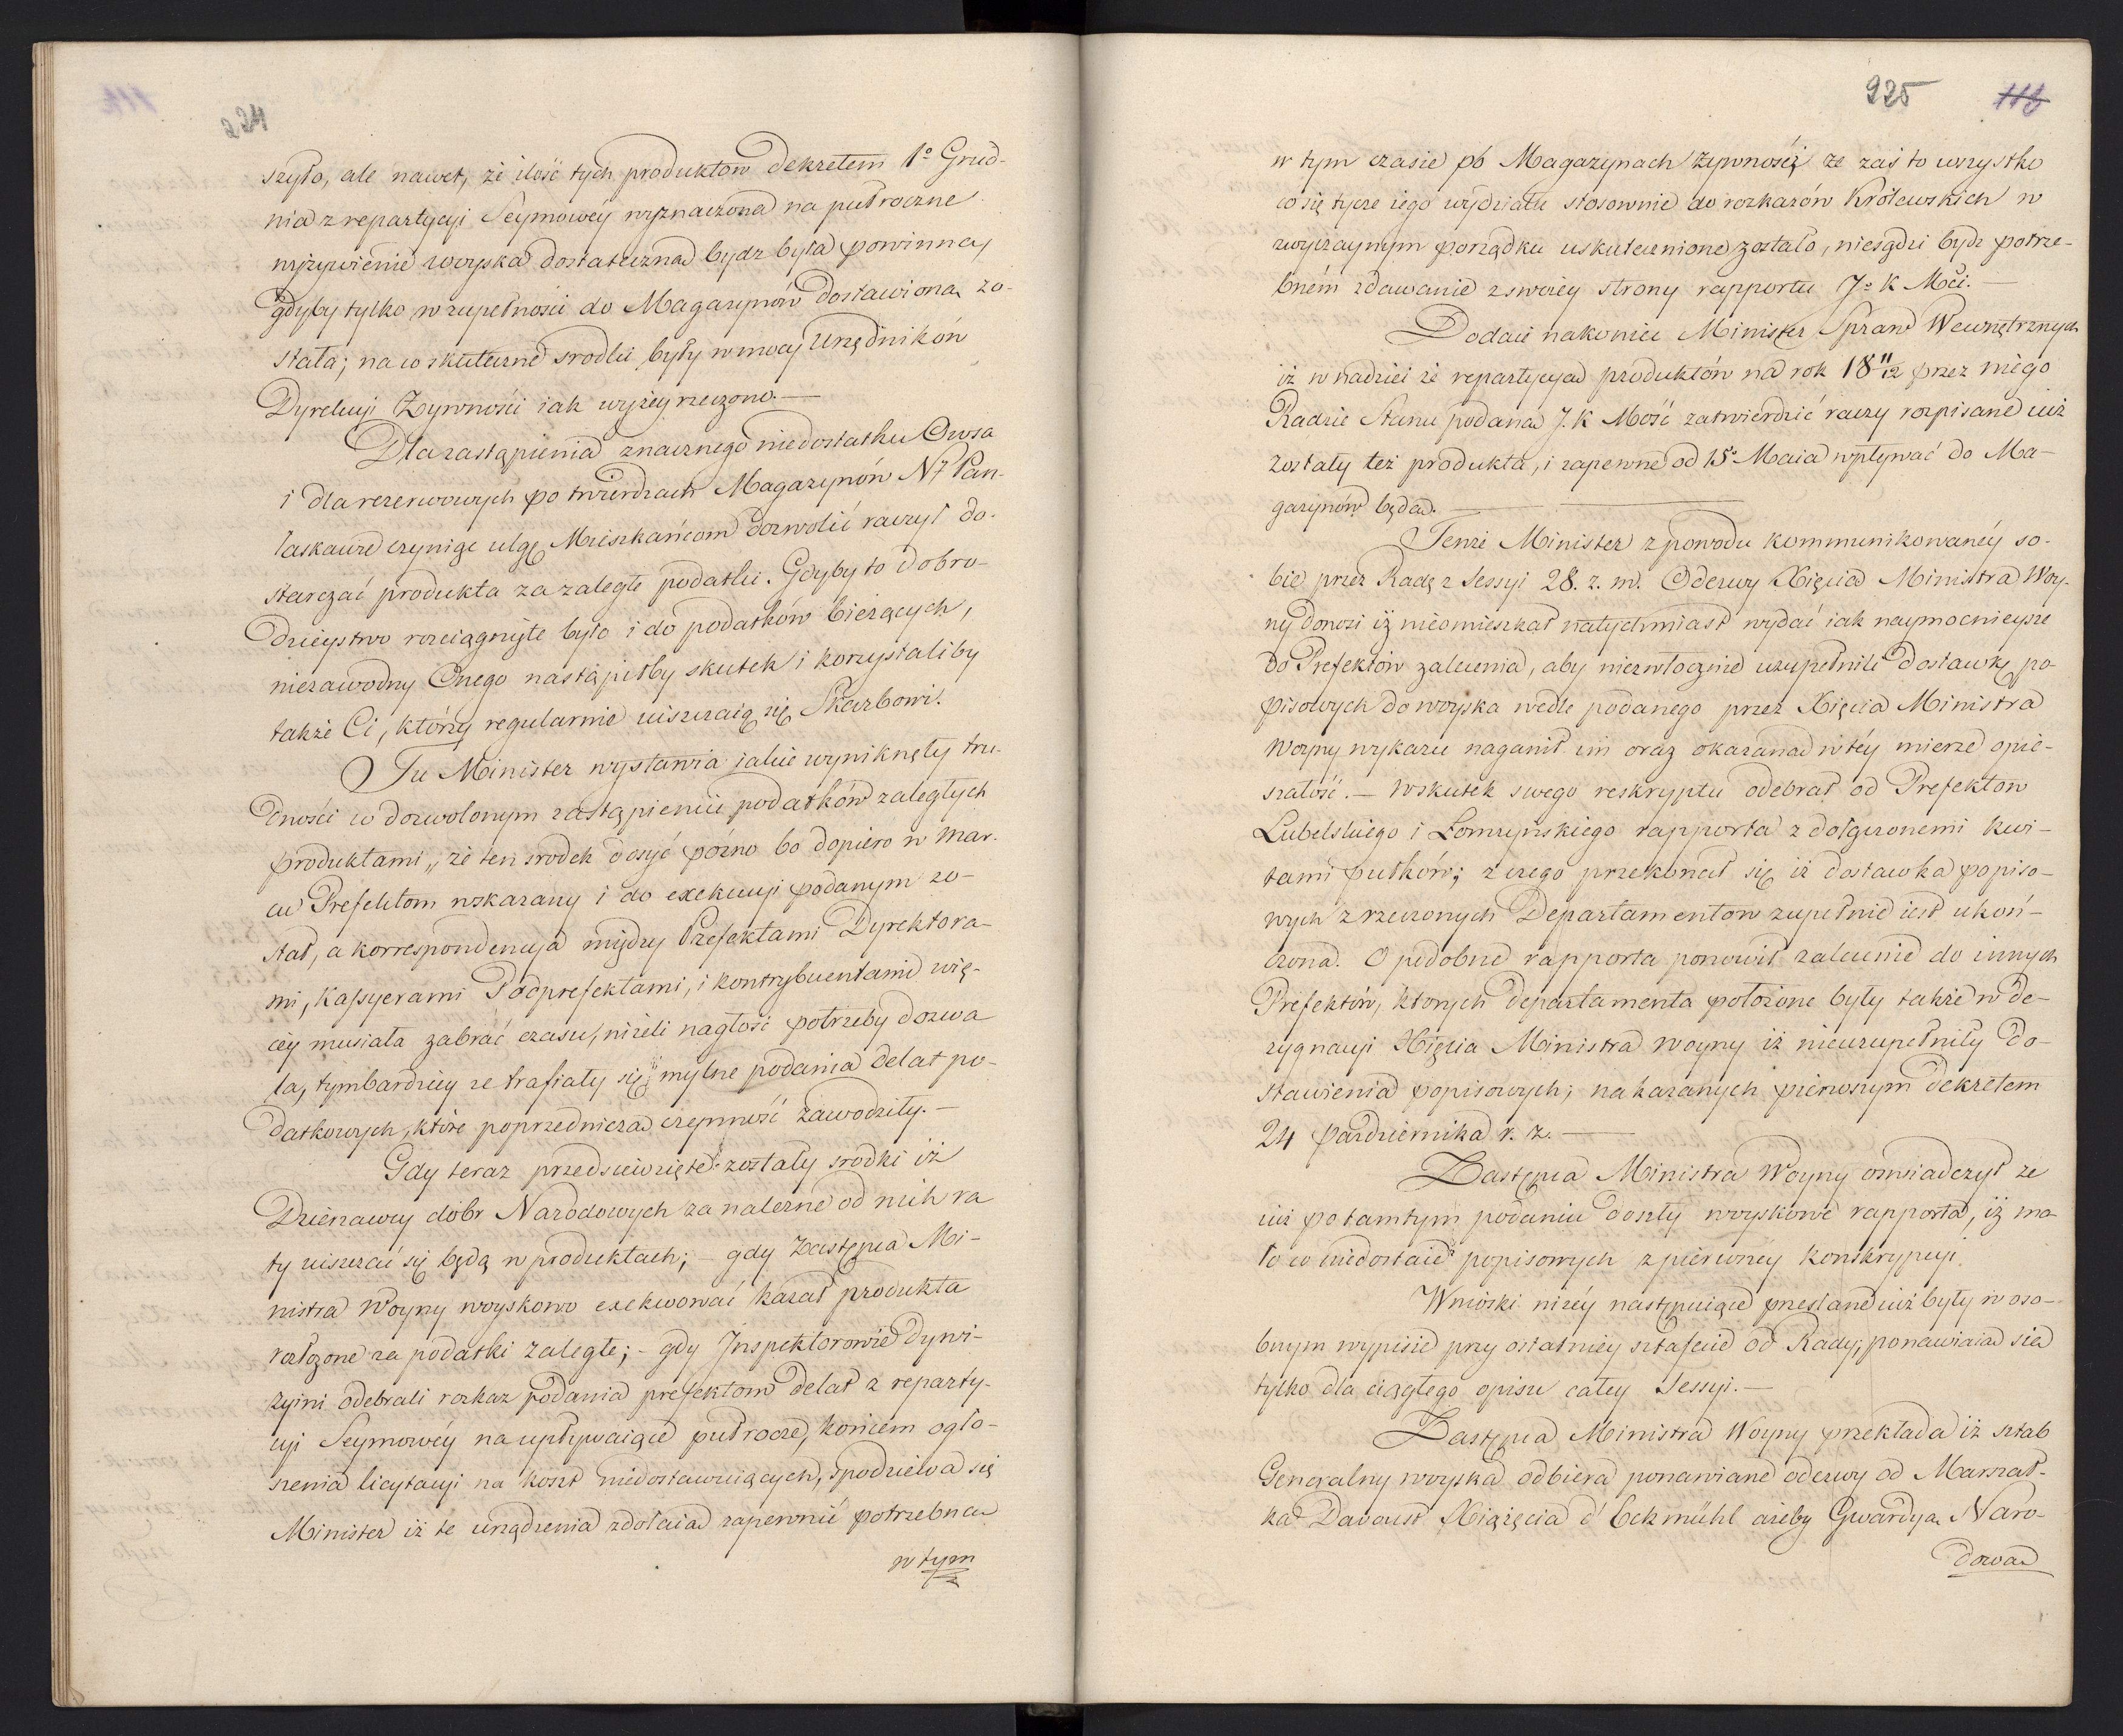 224
szyło, ale nawet, że ilość tych produktow Dekretem 1º Grud-
nia z repartycyi Seymowéy wyznaczona na pułroczne
wyżywienie woyska dostateczna bydz była powinna,
gdyby tylko w zupełności do Magazynów dostawiona zo-
stała; na co skuteczne srodki były w mocy Urzędników
Dyrekcyi Żywności iak wyżey rzeczono. —
Dla zastąpienia znacznego niedostatku Owsa
i dla rezerwowych po twierdzach Magazynów Nº Pan-
łaskawie czyniąc ulgę Mieszkańcom dozwolić raczył do-
starczać produkta za zaległe podatki. Gdyby to dobro-
dzieystwo rozciągnięte było i do podatków bieżących,
niezawodny Onego nastąpiłby skutek i korzystaliby
także Ci, którzy regularnie uiszczaią się Skarbowi.
Tu Minister wystawia iakie wyniknęły tru-
dności w dozwolonym zastąpieniu podatków zaległych
produktami „ że ten srodek dosyć pózno bo dopiero w Mar-
cu Prefektom wskazany i do exekucyi podanym zo-
stał, a korrespondencya między Prefektami Dyrektora-
mi, Kassyerami Podprefektami, i kontrybuentami wię-
céy musiała zabrać czasu, niżeli nagłość potrzeby dozwa
la, tymbardziey ze trafiały się mylne podania delat po-
datkowych, które poprzednicza czynność zawodziły. —
Gdy teraz przedsiewzięte zostały srodki iż
Dzierzawcy dóbr Narodowych za należne od nich ra
ty uiszczać się będą w produktach; — gdy Zastępca Mi-
nistra Woyny woyskowo exekwować kazał produkta
rozłożone za podatki zaległe; — gdy Inspektorowie Dywi-
zyini odebrali rozkaz podania prefektom delat z reparty-
cyi Seymowéy na upływaiące pułrocze, końcem ogło-
szenia licytacyi na koszt niedostawuiących, spodziewa się
Minister iż te urządzenia zdołaią zapewnić potrzebną
w tym
225 113
w tym czasie po Magazynach żywność; ze zaś to wszystko
co się tycze iego wydziału stosownie do rozkazów Królewskich w
zwyczaynym porządku uskutecznione zostało, niesądzi bydz potrze-
bném zdawanie z swoiéy strony rapportu J. K Mči. —
Dodaie nakoniec Minister Spraw Wewnętrznych
iż w nadziei że repartycya produktów na rok 18 11/12 przez niego
Radzie Stanu podana J. K Mość zatwierdzić raczy rozpisane iuż
zostały też produkta, i zapewne od 15º Maia wpływać do Ma-
gazynów będą. —
Tenże Minister z powodu kommunikowanéy so-
bie przez Radę z Sessyi 28. z. m. Odezwy Xięcia Ministra Woy-
ny donosi iż nieomieszkał natychmiast wydać iak naymocnieysze
do Prefektów zalecenia, aby niezwłocznie uzupełnili dostawkę po-
pisowych do woyska wedle podanego przez Xięcia Ministra
Woyny wykazu naganił im oraz okazaną w téy mierze opie-
szałość. — Wskutek swego reskryptu odebrał od Prefektow
Lubelskiego i Łomzyńskiego rapporta z dołączonemi kwi-
tami pułków; z czego przekonał się iż dostawka popiso-
wych z rzeczonych Departamentow zupełnie iest ukoń-
czona. O podobne rapporta ponowił zalecenie do innych
Prefektów, ktorych departamenta położone były także w de-
zygnacyi Xięcia Ministra Woyny iż nieuzupełniły do-
stawienia popisowych; nakazanych pierwszym dekretem
24 Pazdziernika r. z. —
Zastępca Ministra Woyny oswiadczył ze
iuż po tamtym podaniu doszły woyskowe rapporta, iż ma
ło co niedostaie popisowych z pierwszéy konskrypcyi.
Wnioski niżéy następuiące przesłane iuż były w oso-
bnym wypisie przy ostatniéy sztafecie od Rady; ponawiaia sie
tylko dla ciągłego opisu całey Sessyi. —
Zastępca Ministra Woyny przekłada iż sztab
Generalny woyska odbiera ponawiane odezwy od Marszał-
ka Davoust Xiążęcia d' Eckmühl ażeby Gwardya Naro-
dowa